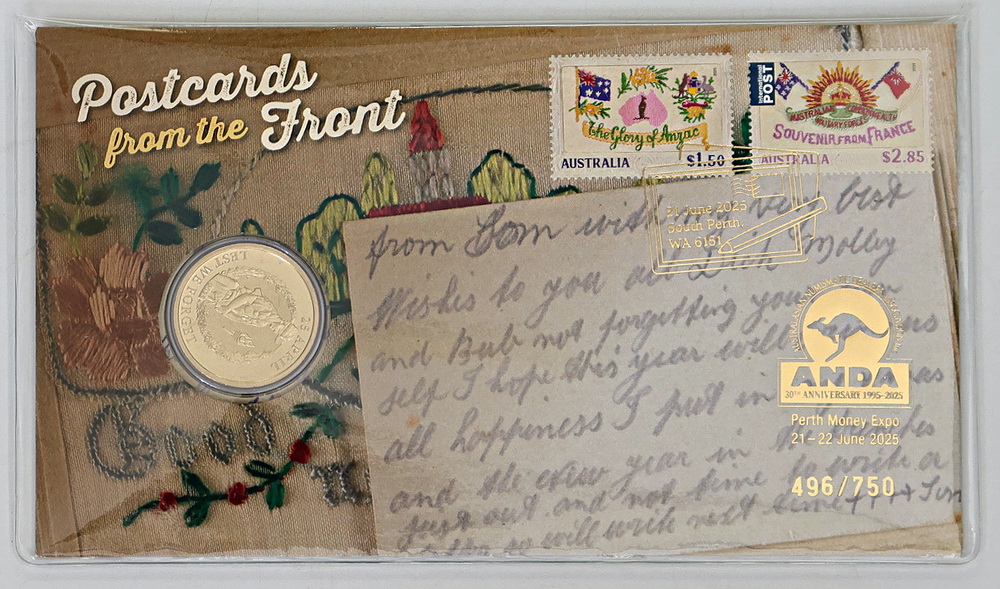 Postcards
from the Front
International
POST
The Glory of Anzac
AUSTRALIA $1.50
AUSTRALIAN COMMONWEALTH
MILITARY FORCES
SOUVENIR FROM FRANCE
AUSTRALIA $2.85
21 June 2025
South Perth,
WA 6151
25 APRIL
LEST WE FORGET
Good
from Tom with very best
Wishes to you all Dick Molley
and Bub not forgetting your
self I hope this year will us
all happiness I put in as
and the new year in
just out and not time to write a
so will write next time Tom
ANDA
30TH ANNIVERSARY 1995-2025
Perth Money Expo
21-22 June 2025
496/750